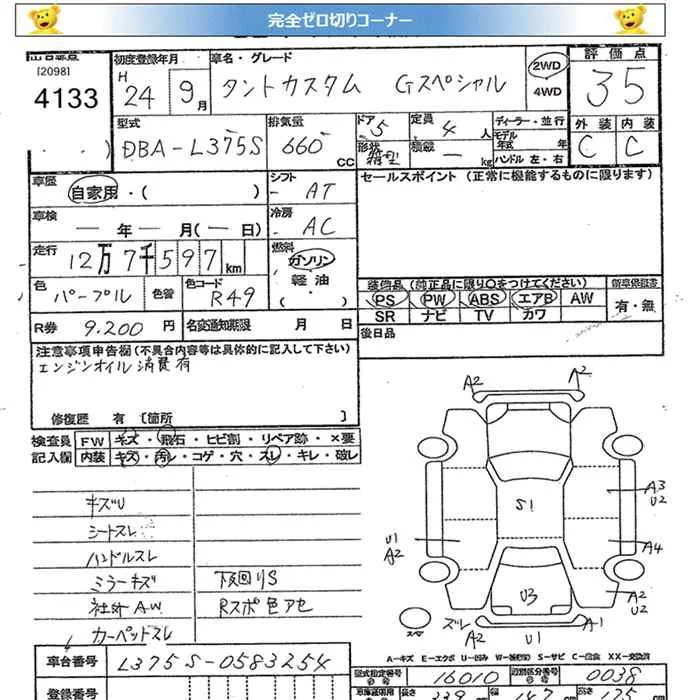 完全ゼロ切りコーナー
出品番号 [2098] 4133
初度登録年月 H 24 9月
車名・グレード タントカスタム Gスペシャル
2WD 4WD
評価点 3.5
外装 内装
C C
型式 DBA-L375S
排気量 660 CC
ドア 5 形状 箱型
定員 4 人 積載 ― kg
ディーラー・並行
モデル年式 年
ハンドル 左・右
車歴 自家用・( )
シフト AT
セールスポイント (正常に機能するものに限ります)
車検 ― 年 ― 月(― 日)
冷房 AC
走行 12万7千597km
燃料 ガソリン 軽油 ( )
色 パープル 色替 色コード R49
装備品 (純正品に限り○をつけてください) 新車保証書
PS PW ABS エアB AW 有・無
SR ナビ TV カワ
R券 9,200 円 名変通知期限 月 日
後日品
注意事項申告欄(不具合内容等は具体的に記入して下さい)
エンジンオイル消費有
修復歴 有 [箇所 ]
検査員記入欄
FW キズ・飛石・ヒビ割・リペア跡・×要
内装 キズ・汚レ・コゲ・穴・スレ・キレ・破レ
キズU
シートスレ
ハンドルスレ
ミラーキズ 下回りS
社外AW Rスポ色アセ
カーペットスレ
A2 A2
S1
A3 U2
U1 A2
A4
U3
A2 U2
スペア ズレ A2 U1 A1
A-キズ E-エクボ U-凹み W-補修跡 S-サビ C-腐食 XX-交換済
車台番号 L375S-0583254
型式指定番号 16010 類別区分番号 0038
登録番号
長さ 339 幅 147 高さ 175